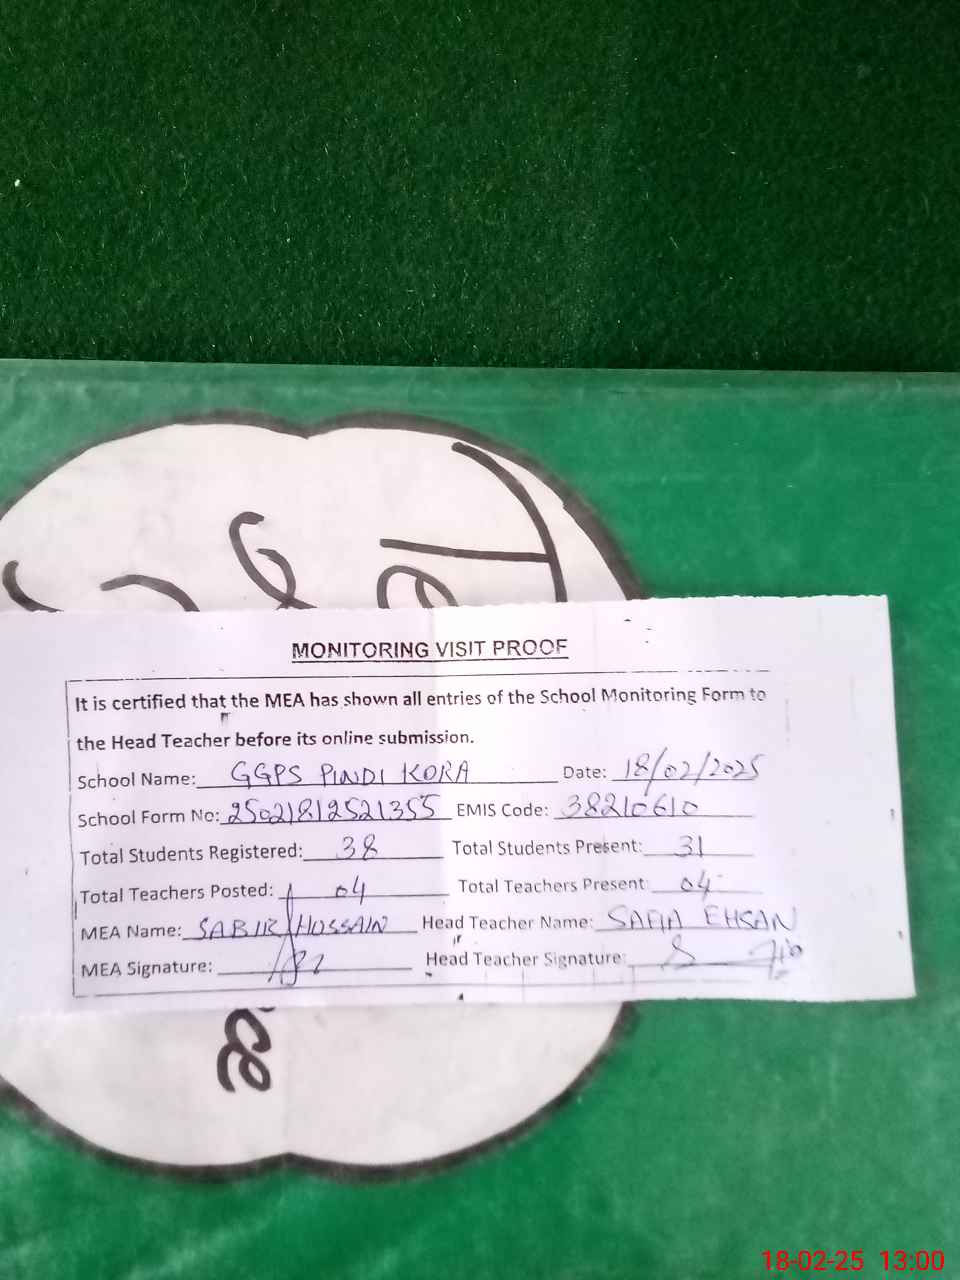 MONITORING VISIT PROOF
It is certified that the MEA has shown all entries of the School Monitoring Form to
the Head Teacher before its online submission.
School Name: GGPS PINDI KORA Date: 18/02/2025
School Form No: 25021812521355 EMIS Code: 38210610
Total Students Registered: 38 Total Students Present: 31
Total Teachers Posted: 04 Total Teachers Present 04
MEA Name: SABIR HUSSAIN Head Teacher Name: SAFIA EHSAN
MEA Signature: Head Teacher Signature:
18-02-25 13:00